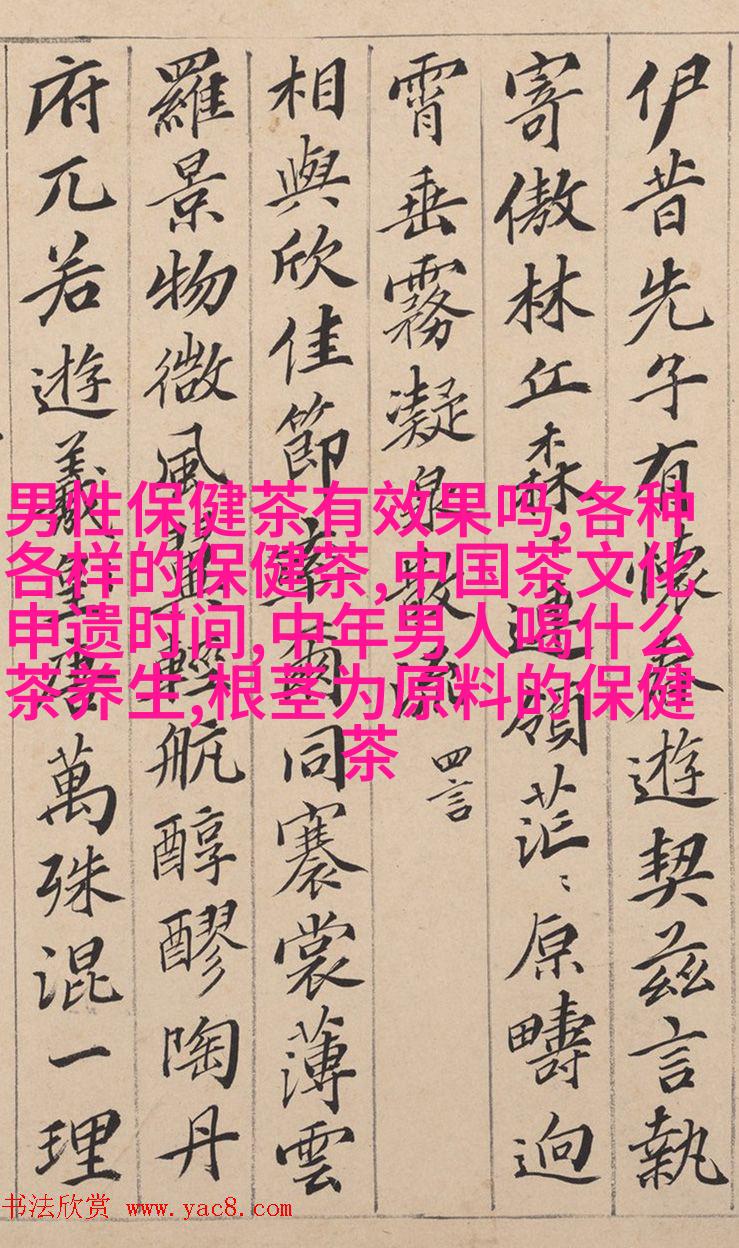 伊昔先子有懷春遊契茲言執
寄傲林丘森連嶺茫〻原疇逈
霄垂霧凝泉散流 四言
相與欣佳節率爾同褰裳薄雲
羅景物微風翼輕航醇醪陶丹
府兀若遊羲萬殊混一理
男性保健茶有效果吗,各种
各样的保健茶,中国茶文化
申遗时间,中年男人喝什么
茶养生,根茎为原料的保健
茶
书法欣赏 www.yac8.com